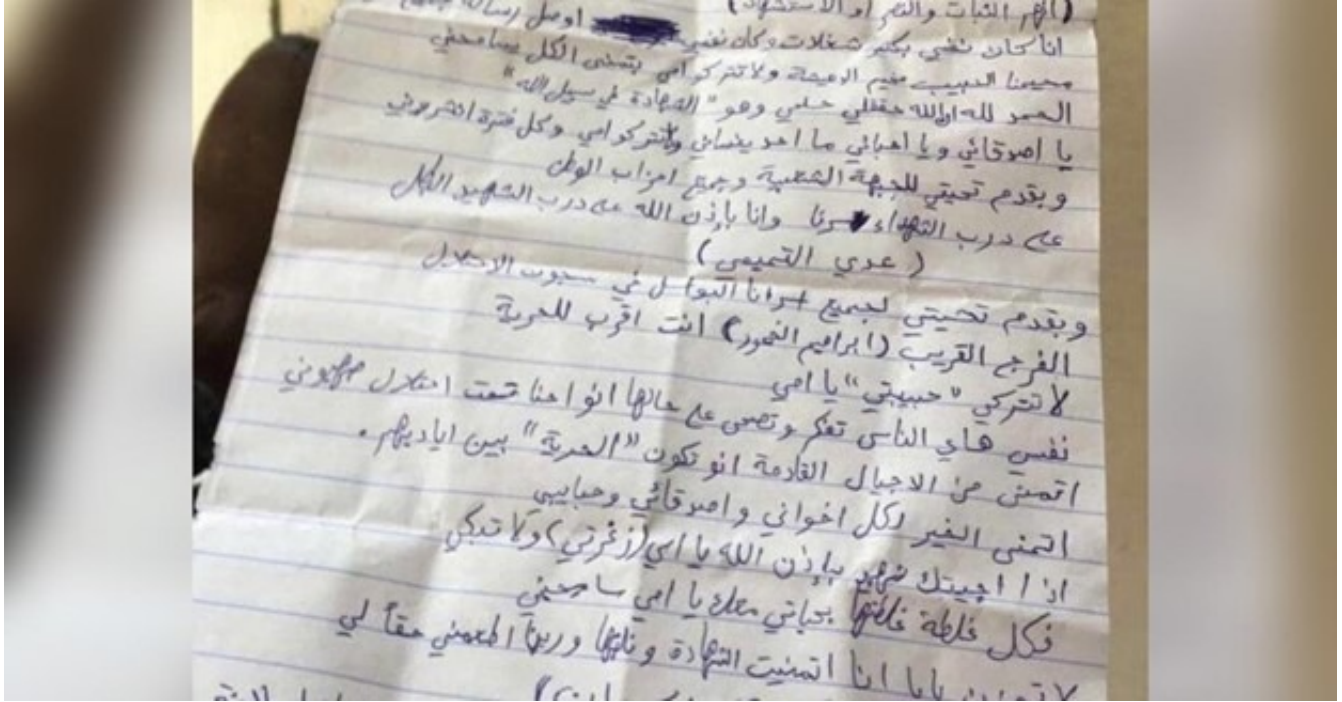 (اللهم الثبات والنصر او الاستشهاد)
انا كان نفسي بكتير شغلات وكان نفسي اوصل رسالة
مخيمنا الحبيب مخيم الدهيشة ولا تتركو امي بتمنى الكل يسامحني
الحمد لله الله حققلي حلمي وهو "الشهادة في سبيل الله"
يا اصدقائي ويا احبائي ما احد ينساني ولا تتركو امي وكل فترة
وبقدم تحيتي للجبهة الشعبية وجميع احزاب الوطن
على درب الشهداء سرنا وانا بإذن الله على درب الشهيد البطل
(عدي التميمي)
وبقدم تحيتي لجميع اسرانا البواسل في سجون الاحتلال
الفرج القريب (ابراهيم) انت اقرب للحرية
لا تتركي "حبيبتي" يا امي
نفسي هاي الناس تفكر وتصحى على حالها انو احنا تحت احتلال صهيوني
اتمنى من الاجيال القادمة انو تكون "الحرية" بين اياديهم.
اتمنى الخير لكل اخواني واصدقائي وحبايبي
اذا اجيتك شهيد بإذن الله يا امي (زغرتي) ولا تبكي
فكل غلطة غلطتها بحياتي معك يا امي سامحيني
لا تحزن يابا انا اتمنيت الشهادة ونلتها وربنا